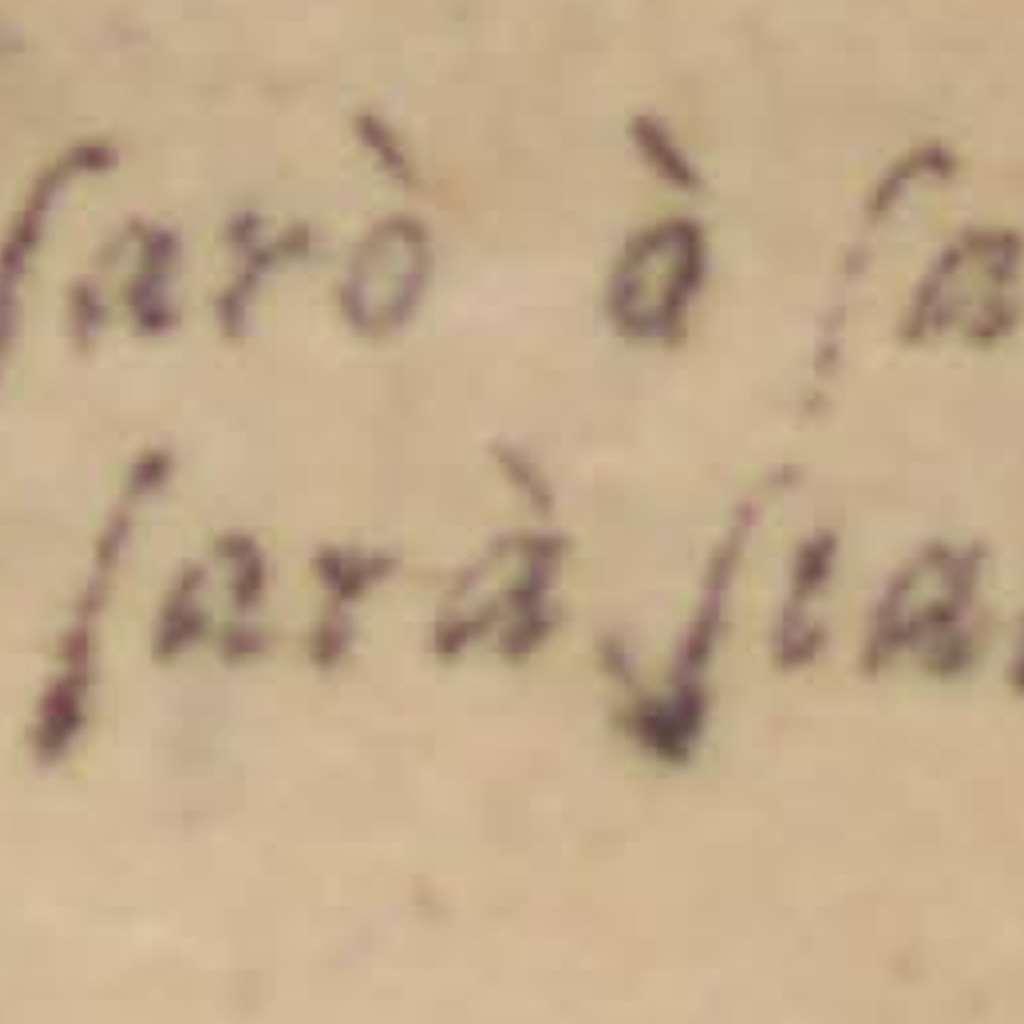 ſarò à ſa
ſarà ſia